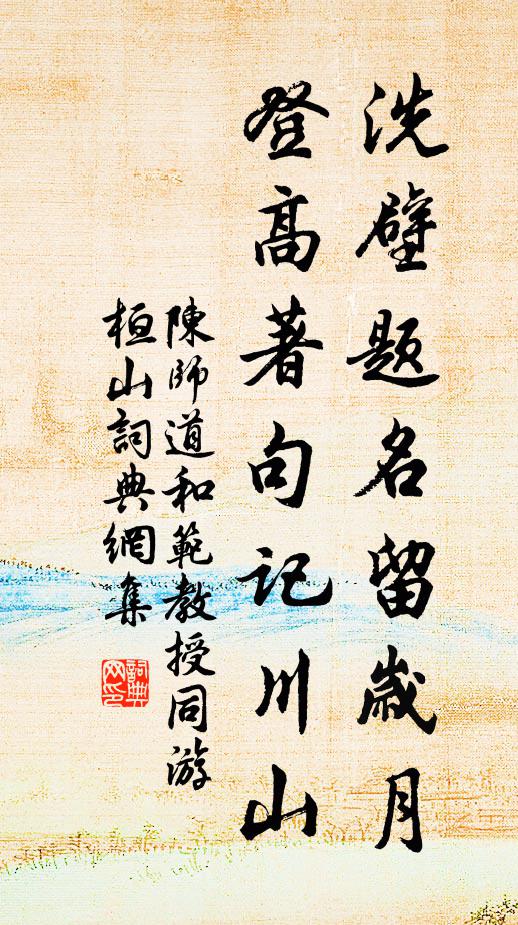 洗壁题名留歲月
登高著句记川山
陳師道和範教授同游
桓山詞典網集
詞典网印